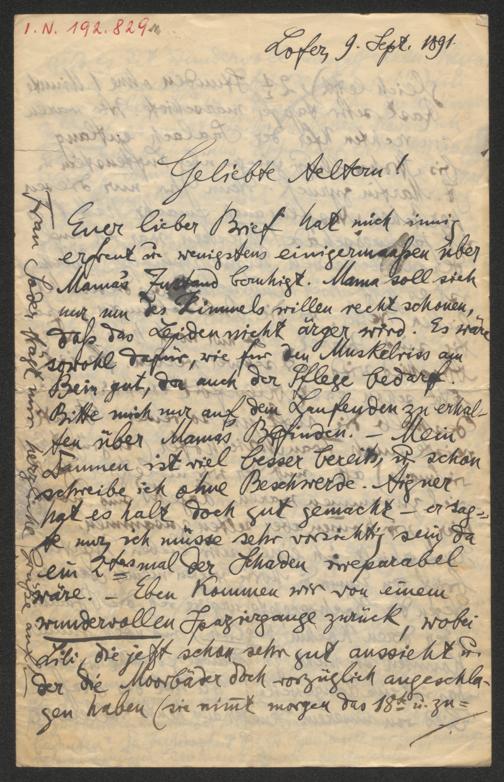 I. N. 192.829
Lofer, 9. Sept. 1891.
Geliebte Aeltern!
Euer lieber Brief hat mich innig
erfreut u. wenigstens einigermaaßen über
Mama's Zustand beruhigt. Mama soll sich
nur, um des Himmels willen recht schonen,
daß das Leiden nicht ärger wird. Es wäre
sowohl dafür, wie für den Muskelriss am
Bein gut, da auch der Pflege bedarf.
Bitte mich nur auf dem Laufenden zu erhal-
ten über Mama's Befinden. – Mein
Daumen ist viel besser bereits, u. schon
schreibe ich ohne Beschwerde. Aigner
hat es halt doch gut gemacht – er sag-
te nur, ich müsse sehr vorsichtig sein da
ein 2tes mal der Schaden irreparabel
wäre. – Eben kommen wir von einem
wundervollen Spaziergange zurück, wobei
Lili, die jetzt schon sehr gut aussieht u.
der die Moorbäder doch vorzüglich angeschla-
gen haben (sie nim̅t morgen das 18te u. zu=
Frau mir herzliche Grüße